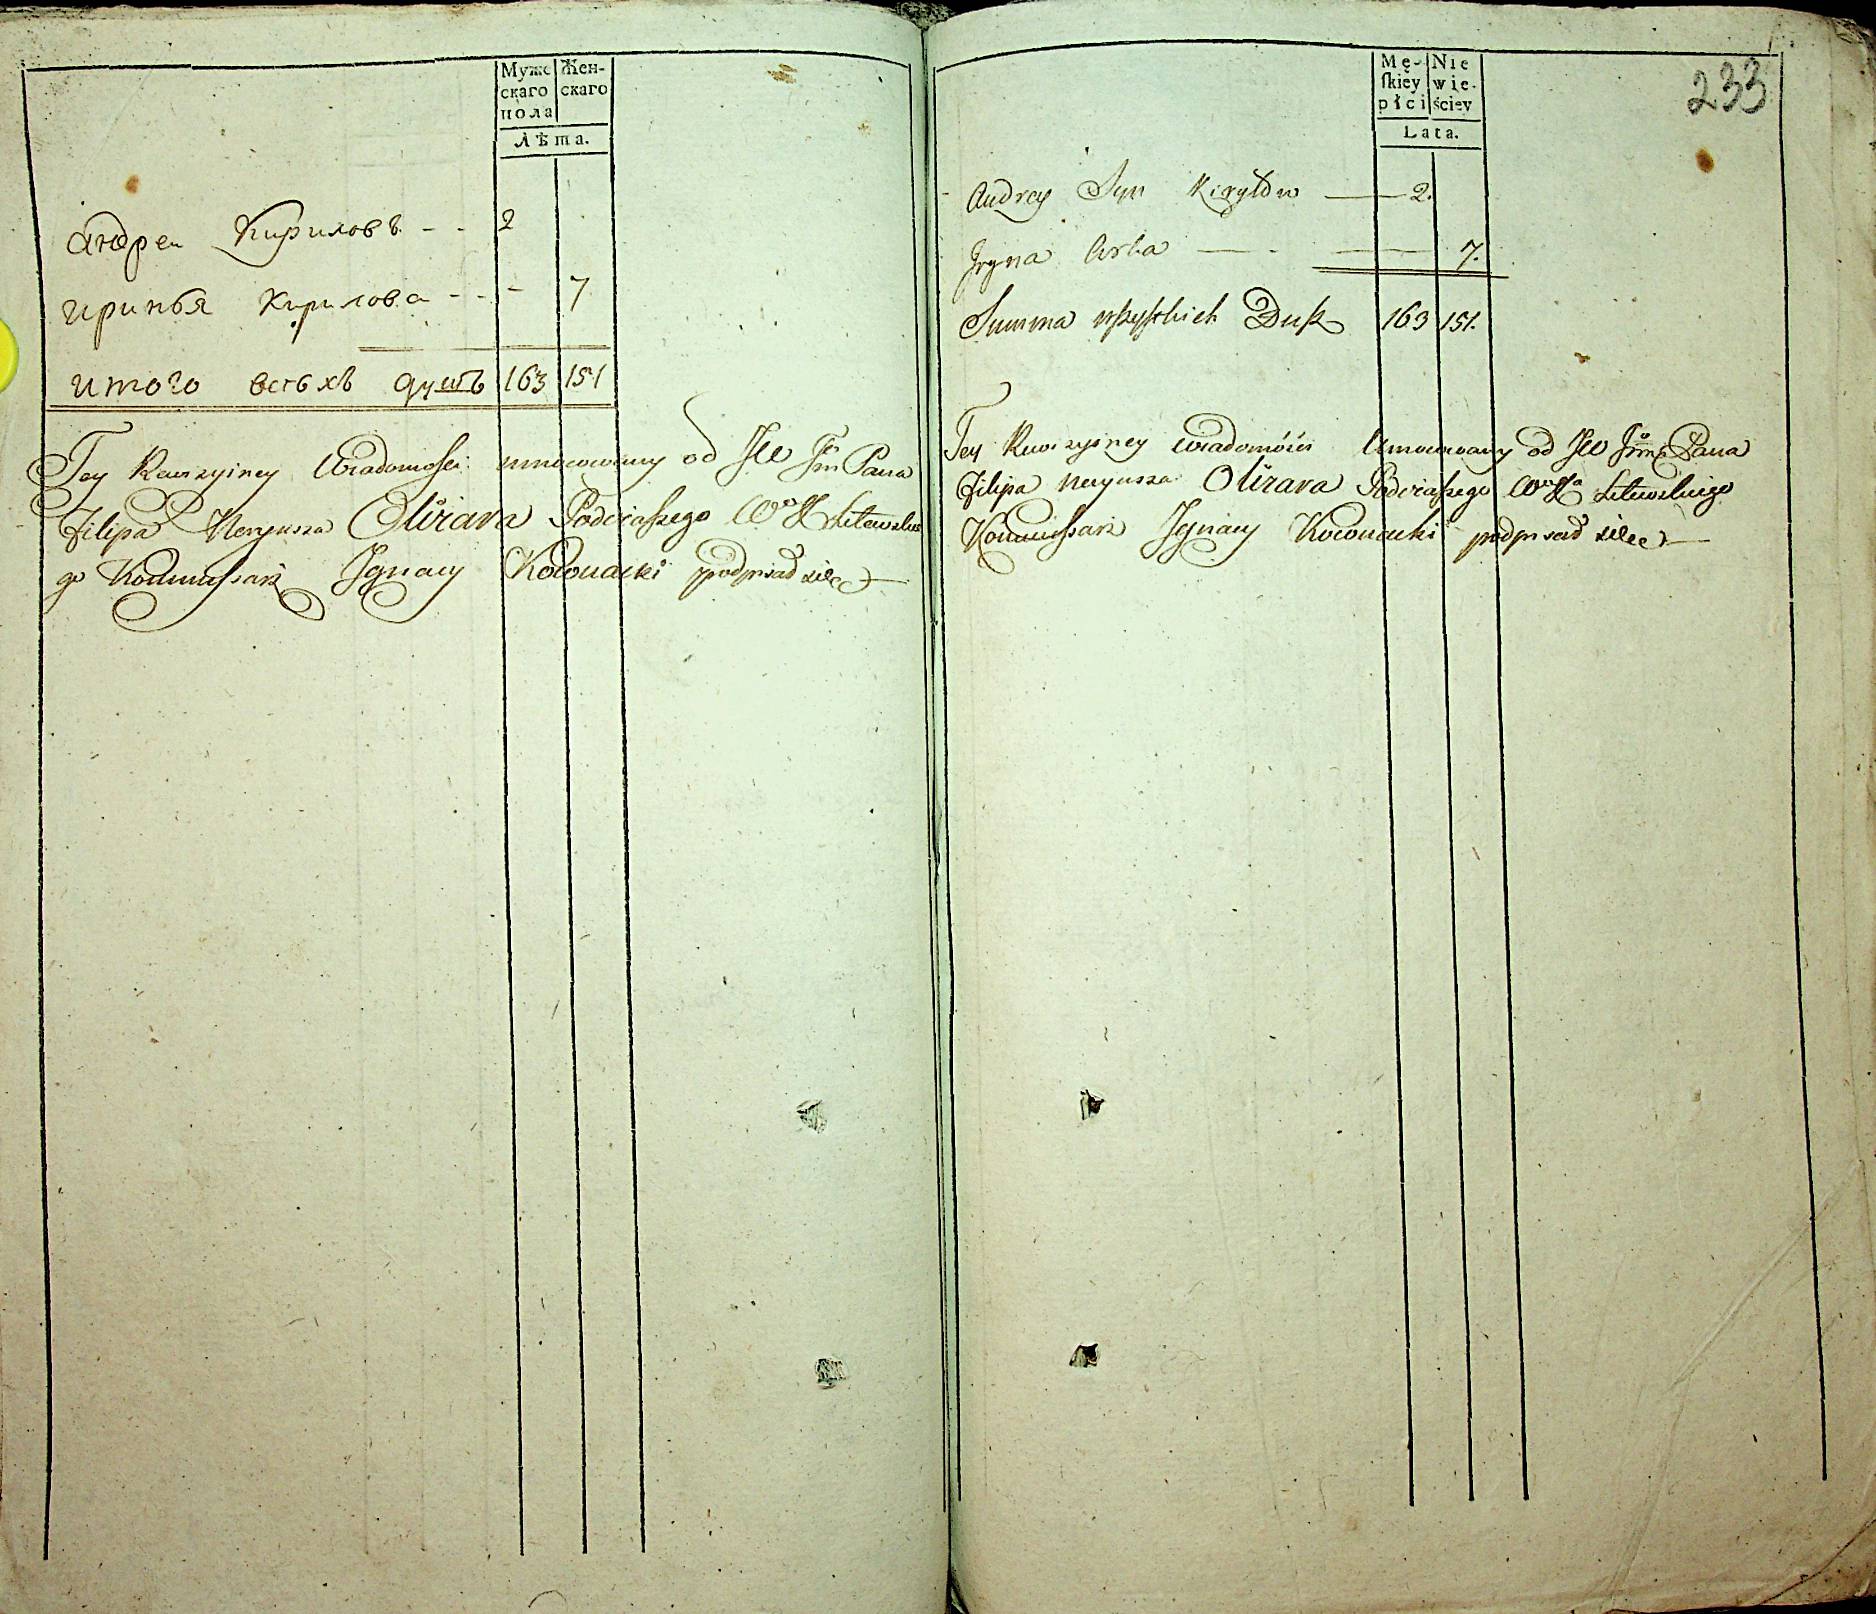 Муже Жен-
скаго скаго
пола
Лѣта.
Андреи Кириловъ - - 2
Иринья Кирилова - - - 7
итого всѣхъ душъ 163 151
Tey Rewizyiney Wiadomosci umocowany od JW Jm Pana
Filipa Neryusza Olizara Podczaszego Wo X Litewskie
go Kommissarz Ignacy podpisał się
233
Mę- Nie
skiey wie-
płci ściey
Lata.
Andrey Syn Kiryłów 2.
Jryna Corka 7.
Summa wszystkich Dusz 163 151.
Tey Rewizyiney Wiadomości Umocowany od JW Jmci Pana
Filipa Neryusza Olizara Podczaszego Litewskiego
Kommissarz Ignacy podpisał się